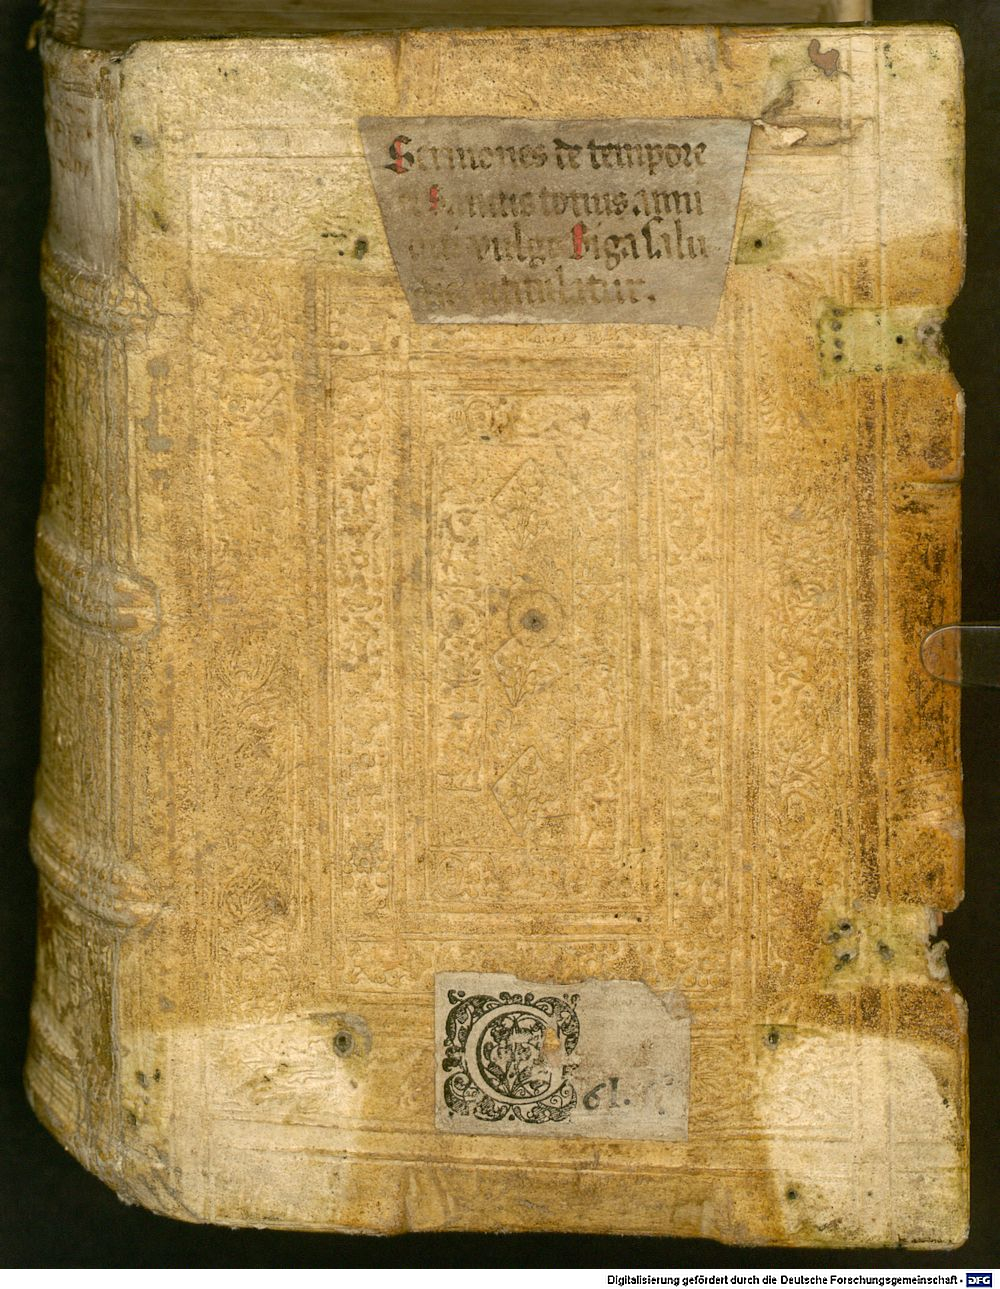 Sermones de tempore
et Sanctis totius anni
qui vulgo Biga salu
tis intitulatur.
C
61.
Digitalisierung gefördert durch die Deutsche Forschungsgemeinschaft - DFG